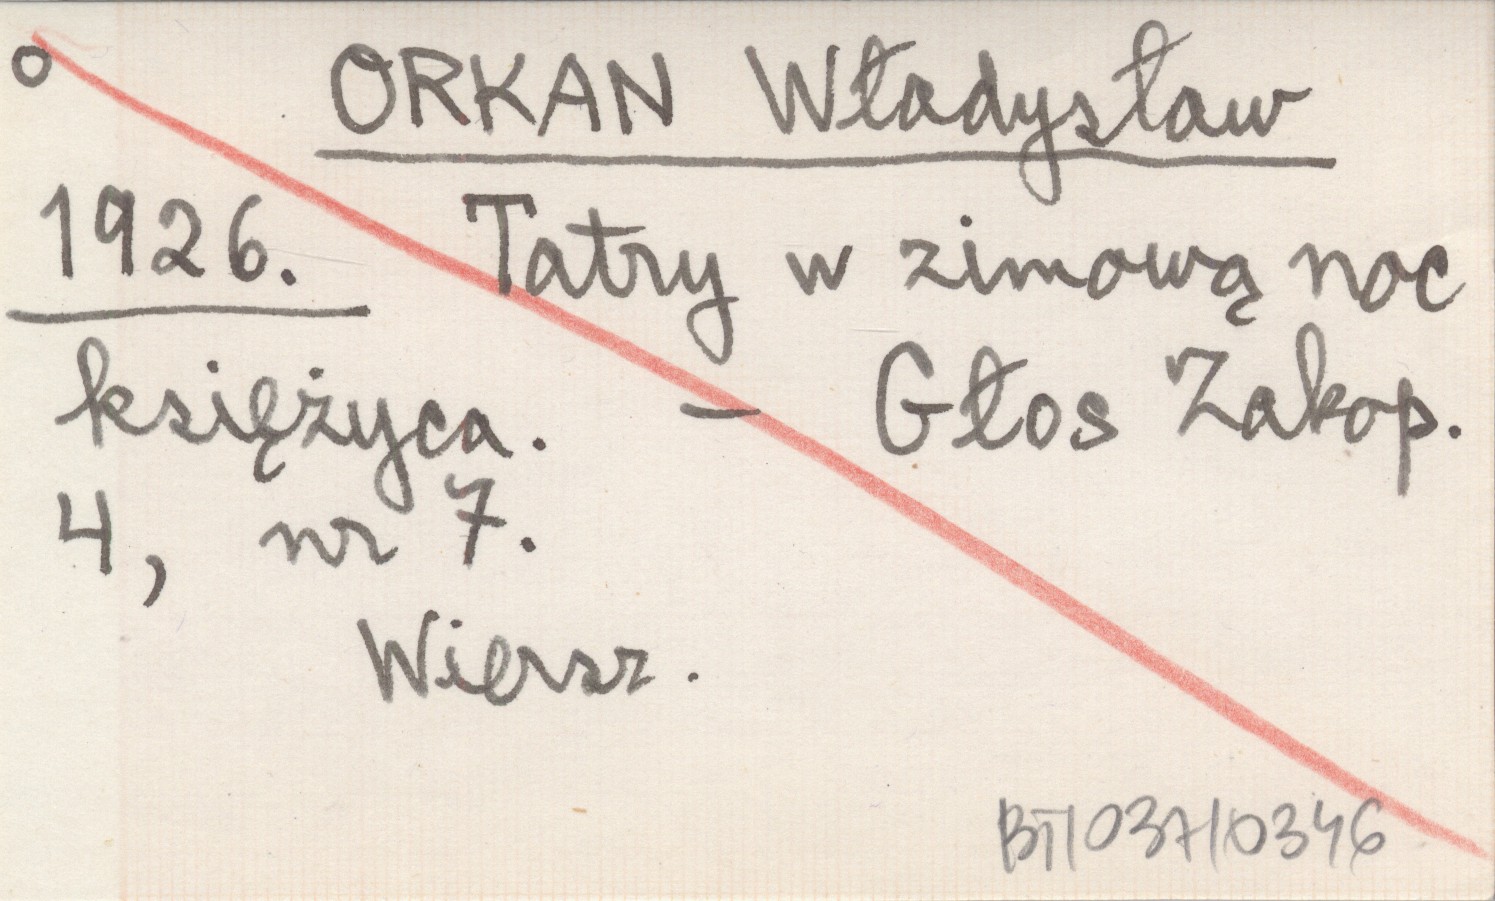 o ORKAN Władysław
1926. Tatry w zimową noc
księżyca. – Głos Zakop.
4, nr 7.
Wiersz.
BT/037/0346